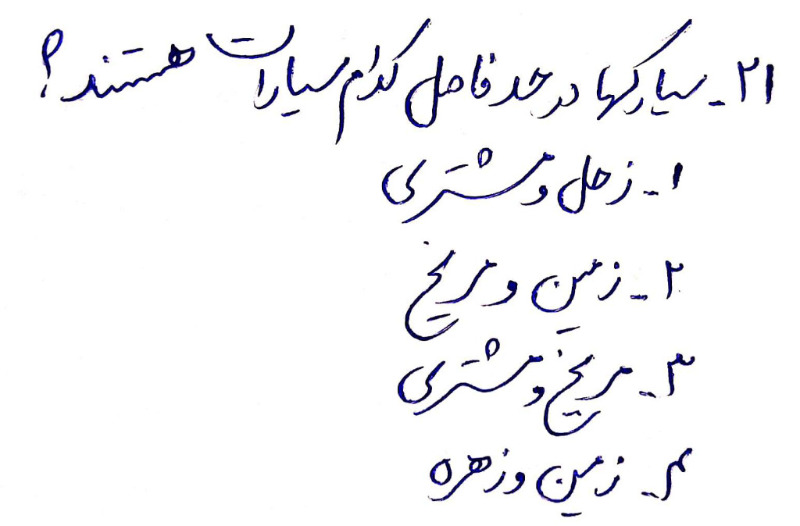 ۲۱ـ سیارکها در حد فاصل کدام سیارات هستند؟
۱ـ زحل و مشتری
۲ـ زمین و مریخ
۳ـ مریخ و مشتری
۴ـ زمین و زهره